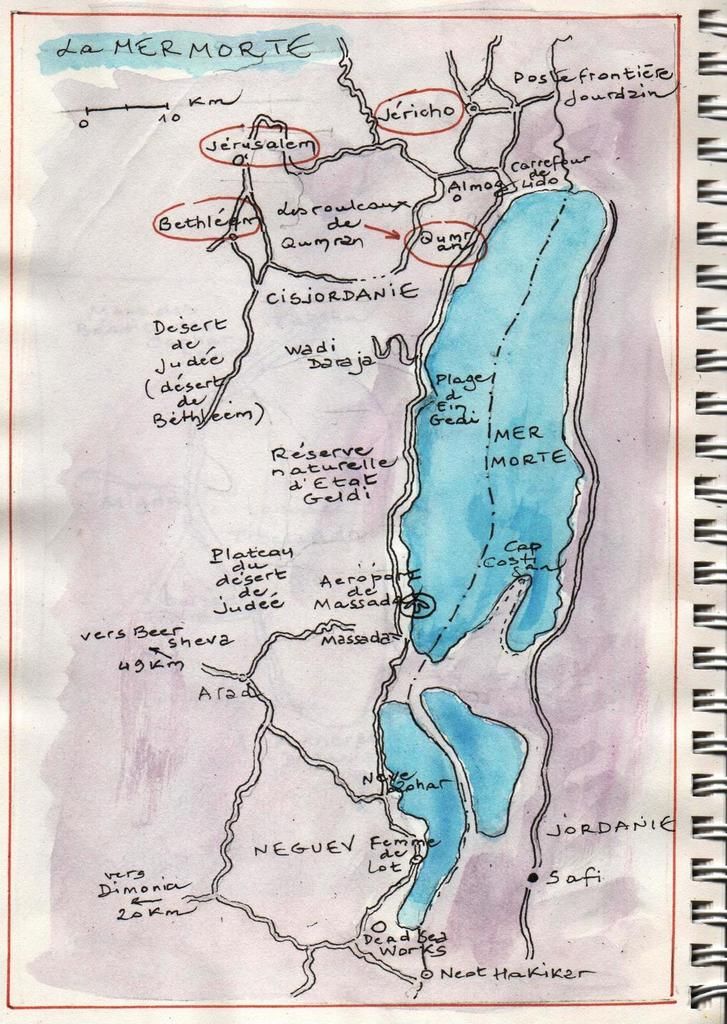 La MER MORTE
Km
0 10
Poste frontière
Jourdain
Jéricho
Jérusalem
Carrefour
de
Lido
Almog
Bethléem
Les rouleaux
de
Qumran
Qumr
an
CISJORDANIE
Désert
de
Judée
(désert
de
Bethléem)
Wadi
Daraja
Plage
d
Ein
Gedi
MER
MORTE
Réserve
naturelle
d'Etat
Geldi
Cap
Costi
gan
Plateau
du
désert
de
Judée
Aeróport
de
Massada
vers Beer
sheva
49 Km
Massada
Arad
Neve
Zohar
NEGUEV
Femme
de
Lot
JORDANIE
vers
Dimonia
20 Km
Safi
Dead Sea
Works
Neot Hakikar